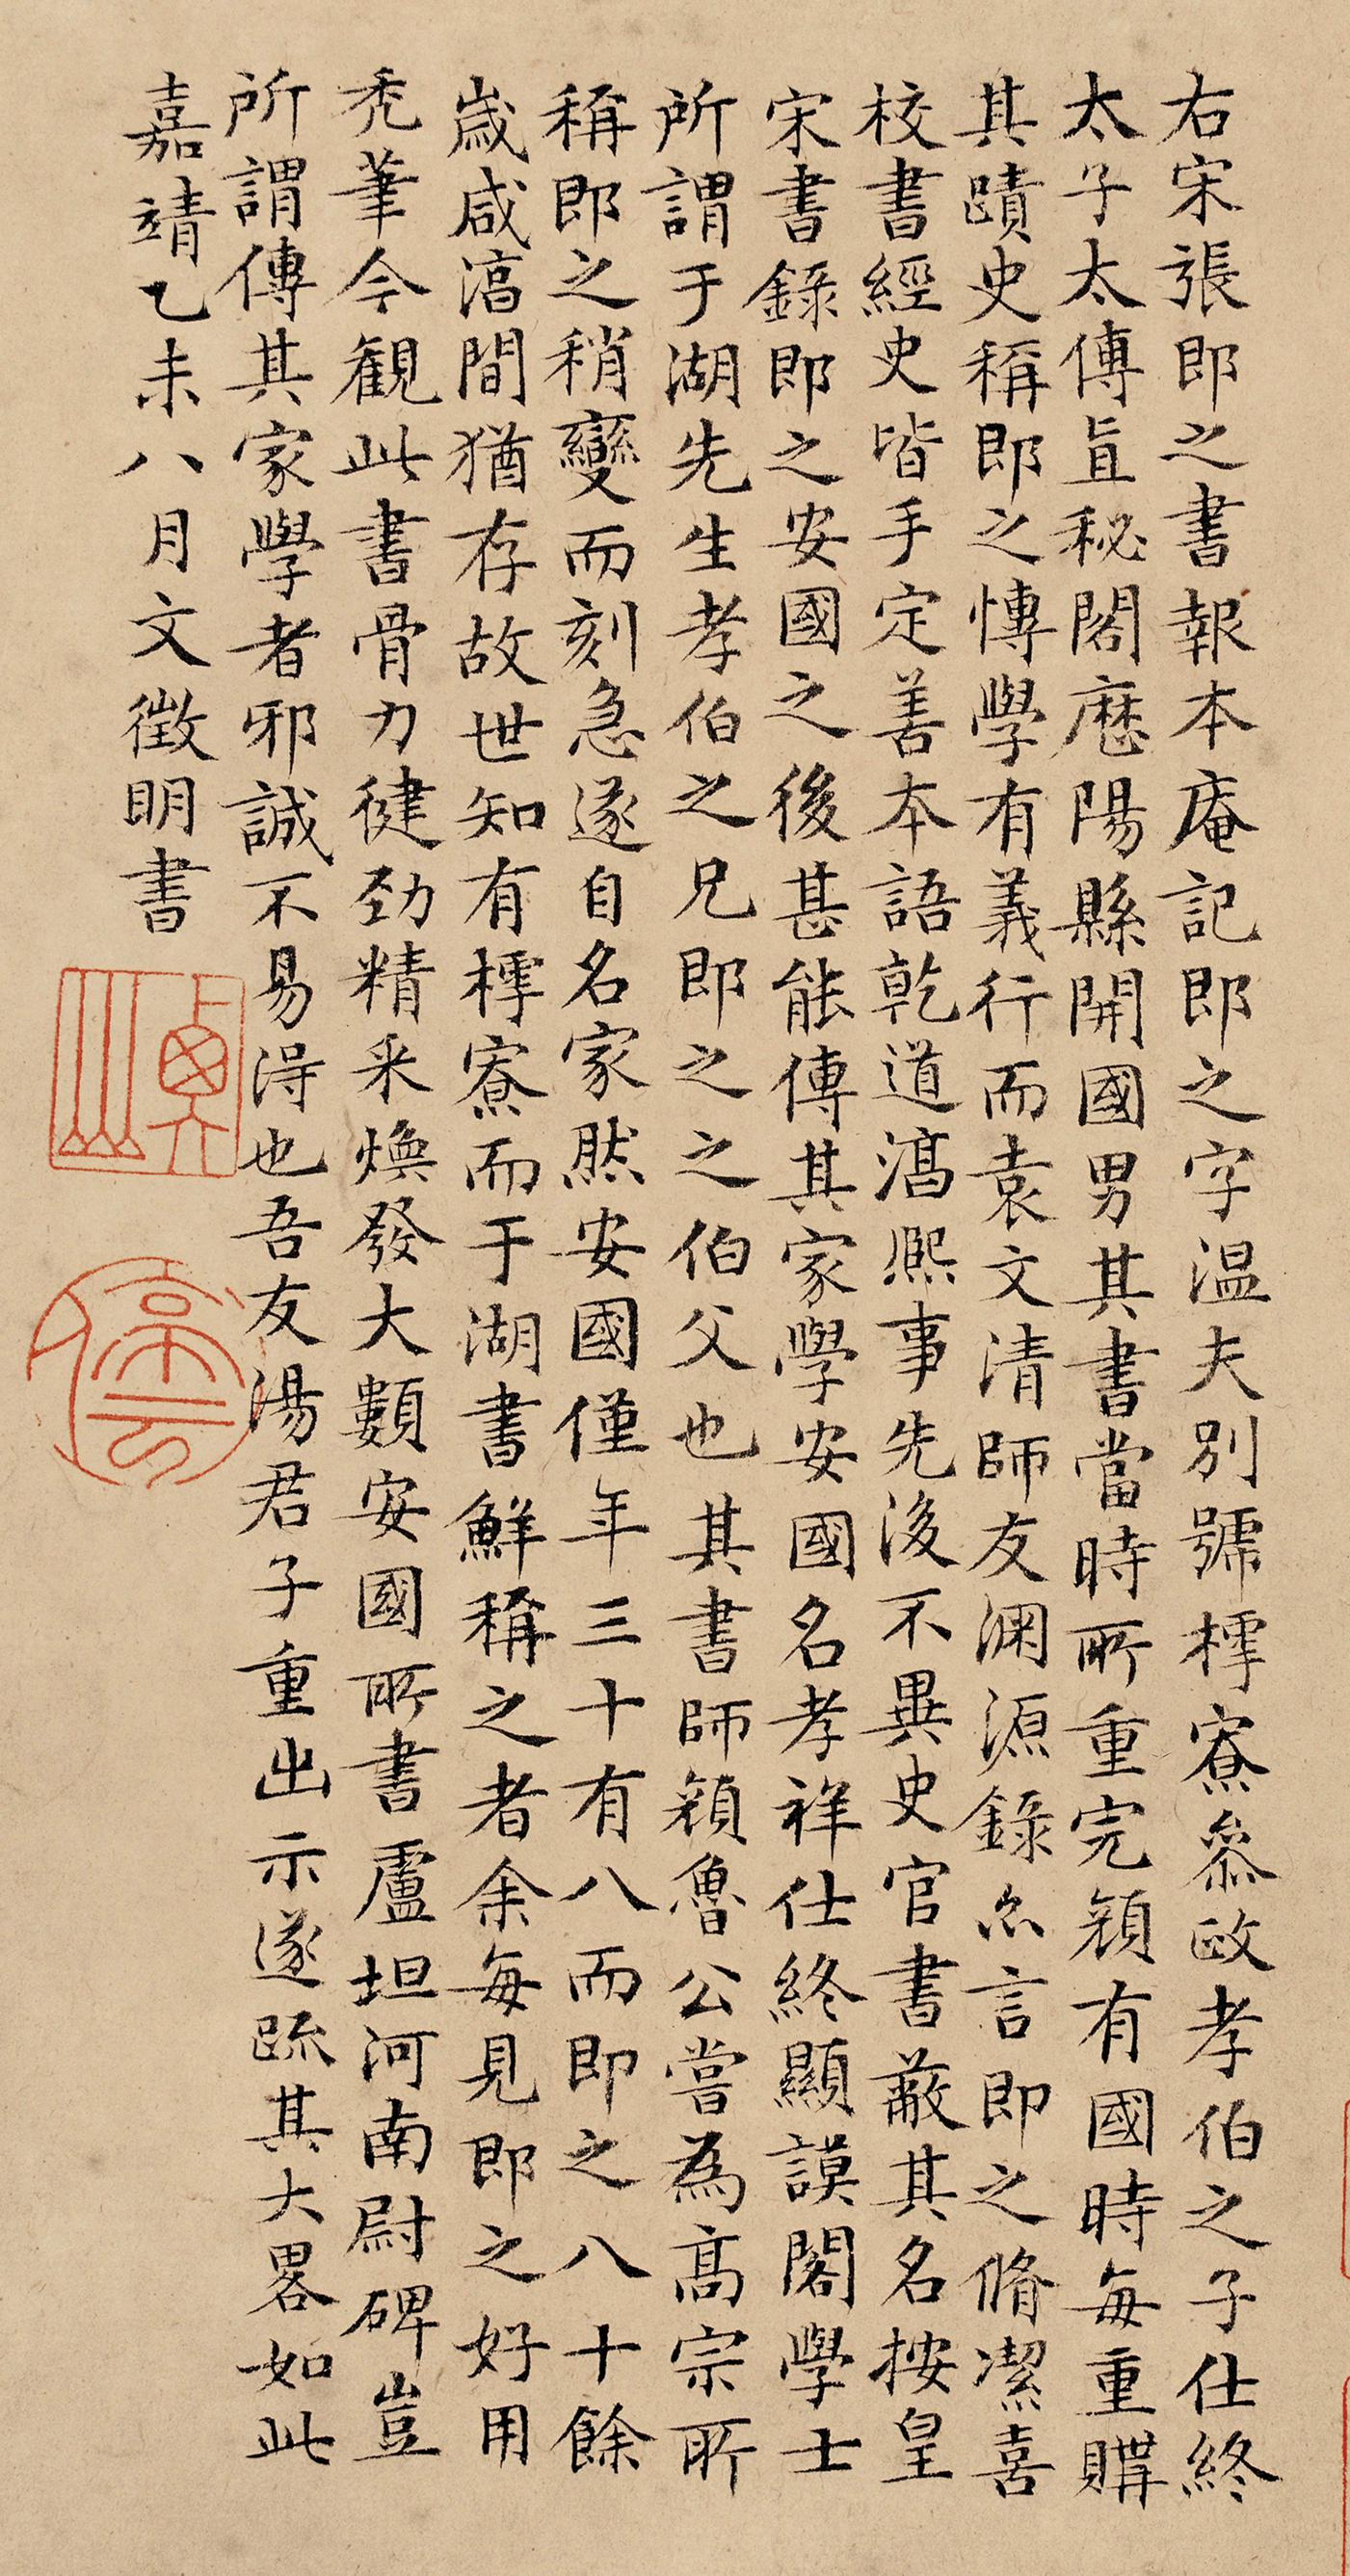 右宋張即之書報本庵記即之字温夫別號樗寮叅政孝伯之子仕終
太子太傅直秘閣歷陽縣開國男其書當時所重完顏有國時每重購
其蹟史稱即之博學有義行而袁文清師友淵源錄亦言即之脩潔喜
校書經史皆手定善本語乾道淳熙事先後不異史官書蔽其名按皇
宋書錄即之安國之後甚能傳其家學安國名孝祥仕終顯謨閣學士
所謂于湖先生孝伯之兄即之之伯父也其書師顏魯公嘗為高宗所
稱即之稍變而刻急遂自名家然安國僅年三十有八而即之八十餘
歲咸淳間猶存故世知有樗寮而于湖書鮮稱之者余每見即之好用
禿筆今觀此書骨力健勁精采煥發大類安國所書盧坦河南尉碑豈
所謂傳其家學者邪誠不易得也吾友湯君子重出示遂疏其大畧如此
嘉靖乙未八月文徵明書
停雲